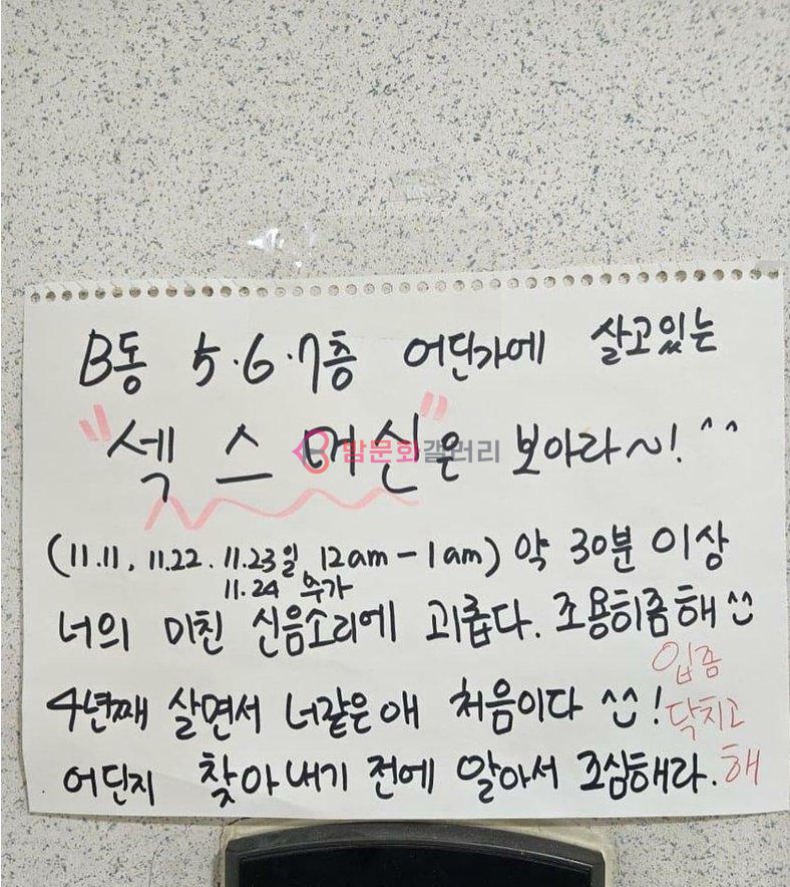 B동 5·6·7층 어딘가에 살고있는
"섹스머신"은 보아라~! ^^
밤문화갤러리
(11.11, 11.22. 11.23일 12am-1am) 약 30분 이상
11.24 추가
너의 미친 신음소리에 괴롭다. 조용히좀해^^
4년째 살면서 너같은애 처음이다 ^^!
어딘지 찾아내기 전에 알아서 조심해라.
입좀
닥치고
해